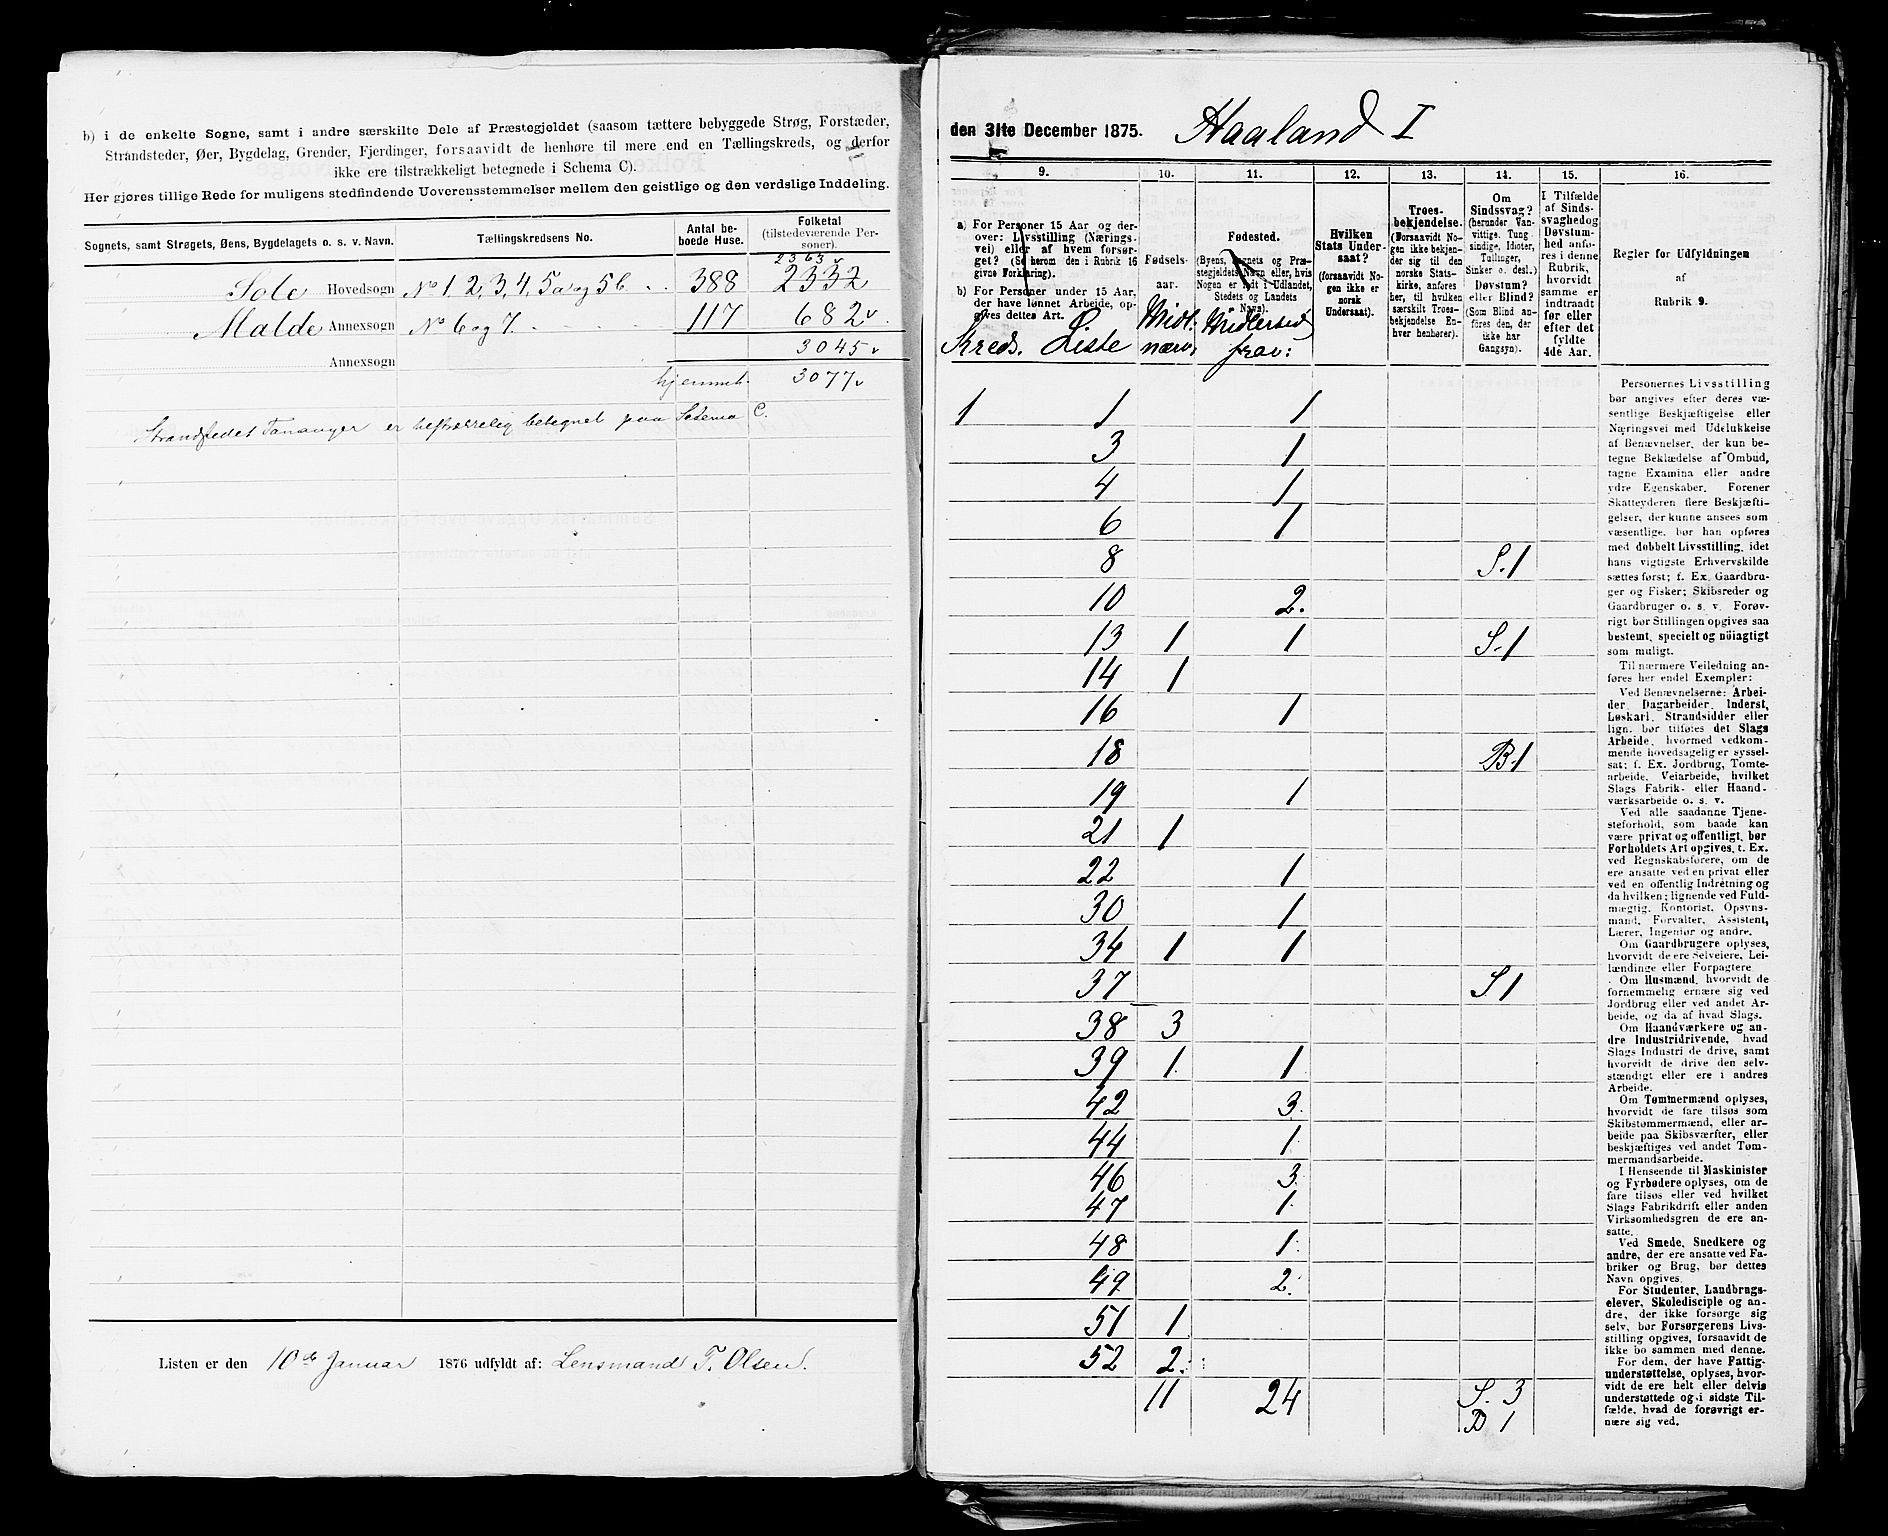 b) i de enkelte Sogne, samt i andre særskilte Dele af Præstegjeldet (saasom tættere bebyggede Strøg, Forstæder,
Strandsteder, Øer, Bygdelag, Grender, Fjerdinger, forsaavidt de henhøre til mere end en Tællingskreds, og derfor
ikke ere tilstrækkeligt betegnede i Schema C).
Her gjøres tillige Rede for muligens stedfindende Uoverensstemmelser mellem den geistlige og den verdslige Inddeling.
Sognets, samt Strøgets, Øens, Bygdelagets o. s. v. Navn. Tællingskredsens No. Antal be-
boede Huse. Folketal
(tilstedeværende Per-
soner).
2363 v
Sole Hovedsogn No 1, 2, 3, 4, 5a og 5b. 388 2332
Malde Annexsogn No 6 og 7. 117 682 v
3045 v
Annexsogn
hjemmeh. 3077 v
Strandstedet Tananger er tilstrækkelig betegnet paa Schema C.
Listen er den 10de Januar 1876 udfyldt af: Lensmand T. Olsen.
den 31te December 1875. Haaland I
9. 10. 11. 12. 13. 14. 15. 16.
a) For Personer 15 Aar og der-
over: Livsstilling (Nærings-
vei) eller af hvem forsør-
get? (Se herom den i Rubrik 16
givne Forklaring).
b) For Personer under 15 Aar,
der have lønnet Arbeide, op-
gives dettes Art.
Kreds. Liste
Fødsels-
aar.
Midl:
nærv:
Fødested.
(Byens, Sognets og Præ-
stegjeldets Navn eller, hvis
Nogen er født i Udlandet,
Stedets og Landets
Navn).
Midlertid
frav:
Hvilken
Stats Under-
saat?
(forsaavidt No-
gen ikke er
norsk
Undersaat).
Troes-
bekjendelse.
(Forsaavidt No-
gen ikke bekjen-
der sig til den
norske Stats-
kirke, anføres
her, til hvilken
særskilt Troes-
bekjendelse En-
hver henhører).
Om
Sindssvag?
(herunder Van-
vittige, Tung-
sindige, Idioter,
Tullinger,
Sinker o. desl.)
Døvstum?
eller Blind?
(Som Blind an-
føres den, der
ikke har
Gangsyn).
I Tilfælde
af Sinds-
svaghed og
Døvstum-
hed anfø-
res i denne
Rubrik,
hvorvidt
samme er
indtraadt
før eller
efter det
fyldte
4de Aar.
Regler for Udfyldningen
af
Rubrik 9.
1 1 1
3 1
4 1
6 1
8 S. 1
10 2.
13 1 1 S. 1
14 1
16 1
18 B. 1
19 1
21 1
22 1
30 1
34 1 1
37 S 1
38 3
39 1. 1
42 3.
44 1.
46 3.
47 1.
48 1.
49 2.
51 1.
52 2.
11 24 S. 3
B 1
Personernes Livsstilling
bør angives efter deres væ-
sentlige Beskjæftigelse eller
Næringsvei med Udelukkelse
af Benævnelser, der kun be-
tegne Beklædelse af Ombud,
tagne Examina eller andre
ydre Egenskaber. Forener
Skatteyderen flere Beskjæfti-
gelser, der kunne ansees som
væsentlige, bør han opføres
med dobbelt Livsstilling, idet
hans vigtigste Erhvervskilde
sættes først; f. Ex. Gaardbru-
ger og Fisker; Skibsreder og
Gaardbruger o. s. v. Forøv-
rigt bør Stillingen opgives saa
bestemt, specielt og nöiagtigt
som muligt.
Til nærmere Veiledning an-
føres her endel Exempler:
Ved Benævnelserne: Arbei-
der, Dagarbeider, Inderst,
Løskarl, Strandsidder eller
lign. bør tilføies det Slags
Arbeide, hvormed vedkom-
mende hovedsagelig er syssel-
sat; f. Ex. Jordbrug, Tomte-
arbeide, Veiarbeide, hvilket
Slags Fabrik- eller Haand-
værksarbeide o. s. v.
Ved alle saadanne Tjene-
steforhold, som baade kan
være privat og offentligt, bør
Forholdets Art opgives, t. Ex.
ved Regnskabsførere, om de
ere ansatte ved en privat eller
ved en offentlig Indretning og
da hvilken; lignende ved Fuld-
mægtig, Kontorist, Opsyns-
mand, Forvalter, Assistent,
Lærer, Ingeniør og andre.
Om Gaardbrugere oplyses,
hvorvidt de ere Selveiere, Lei-
lændinge eller Forpagtere
Om Husmænd, hvorvidt de
fornemmelig ernære sig ved
Jordbrug eller ved andet Ar-
beide, og da af hvad Slags.
Om Haandværkere og an-
dre Industridrivende, hvad
Slags Industri de drive, samt
hvorvidt de drive den selv-
stændigt eller ere i andres
Arbeide.
Om Tømmermænd oplyses,
hvorvidt de fare tilsøs som
Skibstømmermænd, eller ar-
beide paa Skibsværfter, eller
beskjæftiges ved andet Tøm-
mermandsarbeide.
I Henseende til Maskinister
og Fyrbødere oplyses, om de
fare tilsøs eller ved hvilket
Slags Fabrikdrift eller anden
Virksomhedsgren de ere an-
satte.
Ved Smede, Snedkere og
andre, der ere ansatte ved Fa-
briker og Brug, bør dettes
Navn opgives.
For Studenter, Landbrugs-
elever, Skoledisciple og an-
dre, der ikke forsørge sig
selv, bør Forsørgerens Livs-
stilling opgives, forsaavidt de
ikke bo sammen med denne.
For dem, der have Fattig-
understøttelse, oplyses, hvor-
vidt de ere helt eller delvis
understøttede og i sidste Til-
fælde, hvad de forøvrigt er-
nære sig ved.